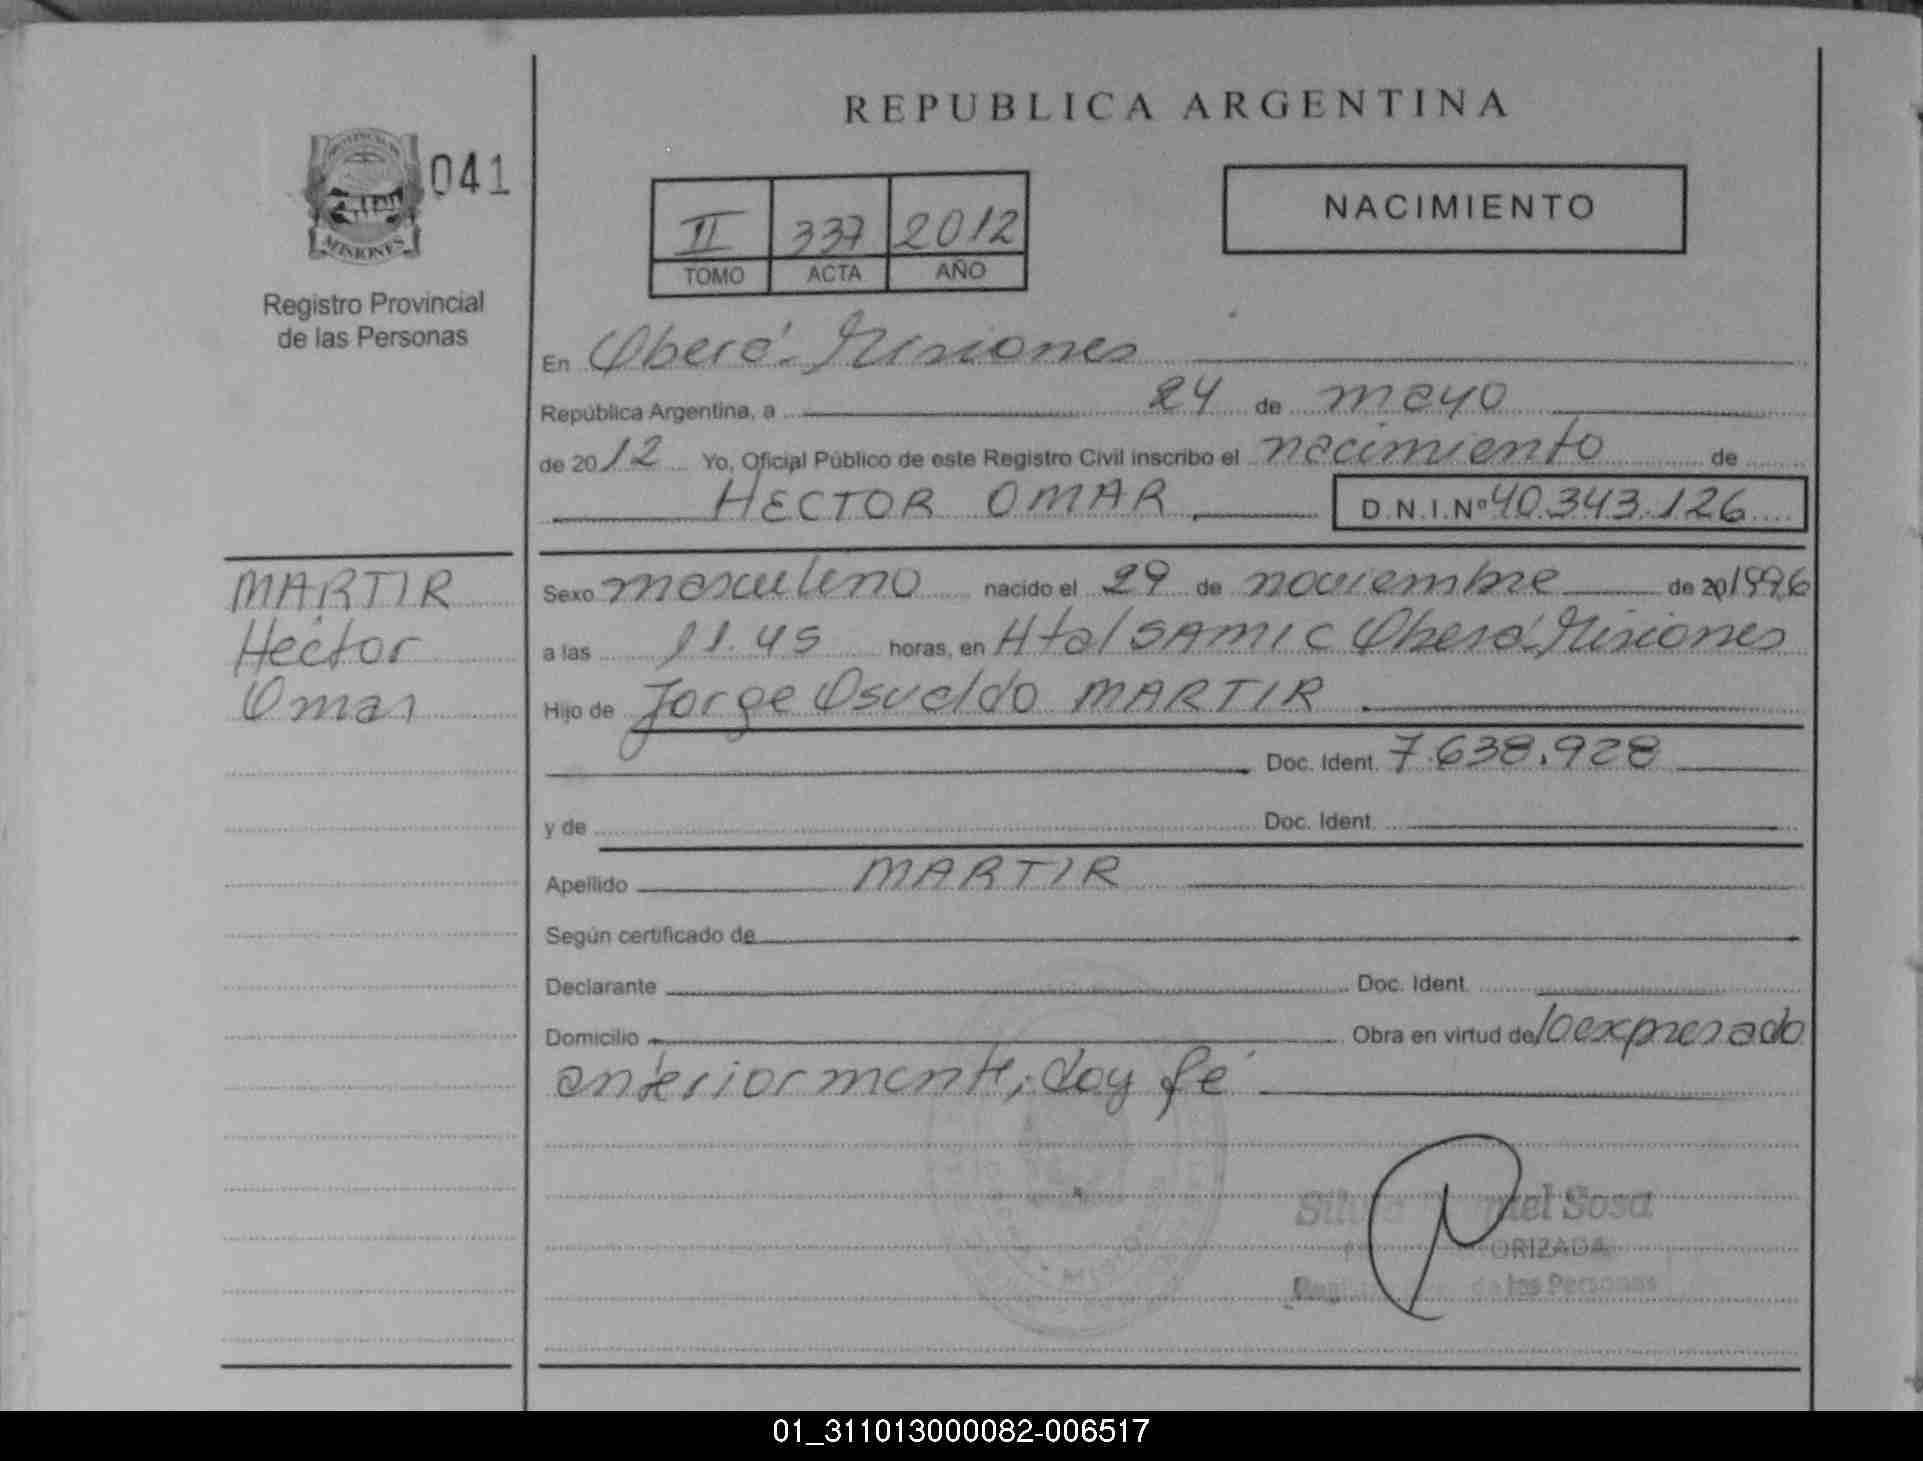 REPUBLICA ARGENTINA
PROVINCIA DE
MISIONES
041
Registro Provincial
de las Personas
II 337 2012
TOMO ACTA AÑO
NACIMIENTO
En Oberá - Misiones
República Argentina, a 24 de mayo
de 2012 Yo, Oficial Público de este Registro Civil inscribo el nacimiento de
HECTOR OMAR D.N.I.Nº 40.343.126
MARTIR
Hector
Omar
Sexo masculino nacido el 29 de noviembre de 20 1996
a las 11.45 horas, en Htal SAMIC Oberá Misiones
Hijo de Jorge Osvaldo MARTIR
Doc. Ident. 7.638.928
y de Doc. Ident.
Apellido MARTIR
Según certificado de
Declarante Doc. Ident.
Domicilio Obra en virtud de lo expresado
anteriormente, doy fé
Sosa
ORIZADA
de las Personas
01_311013000082-006517